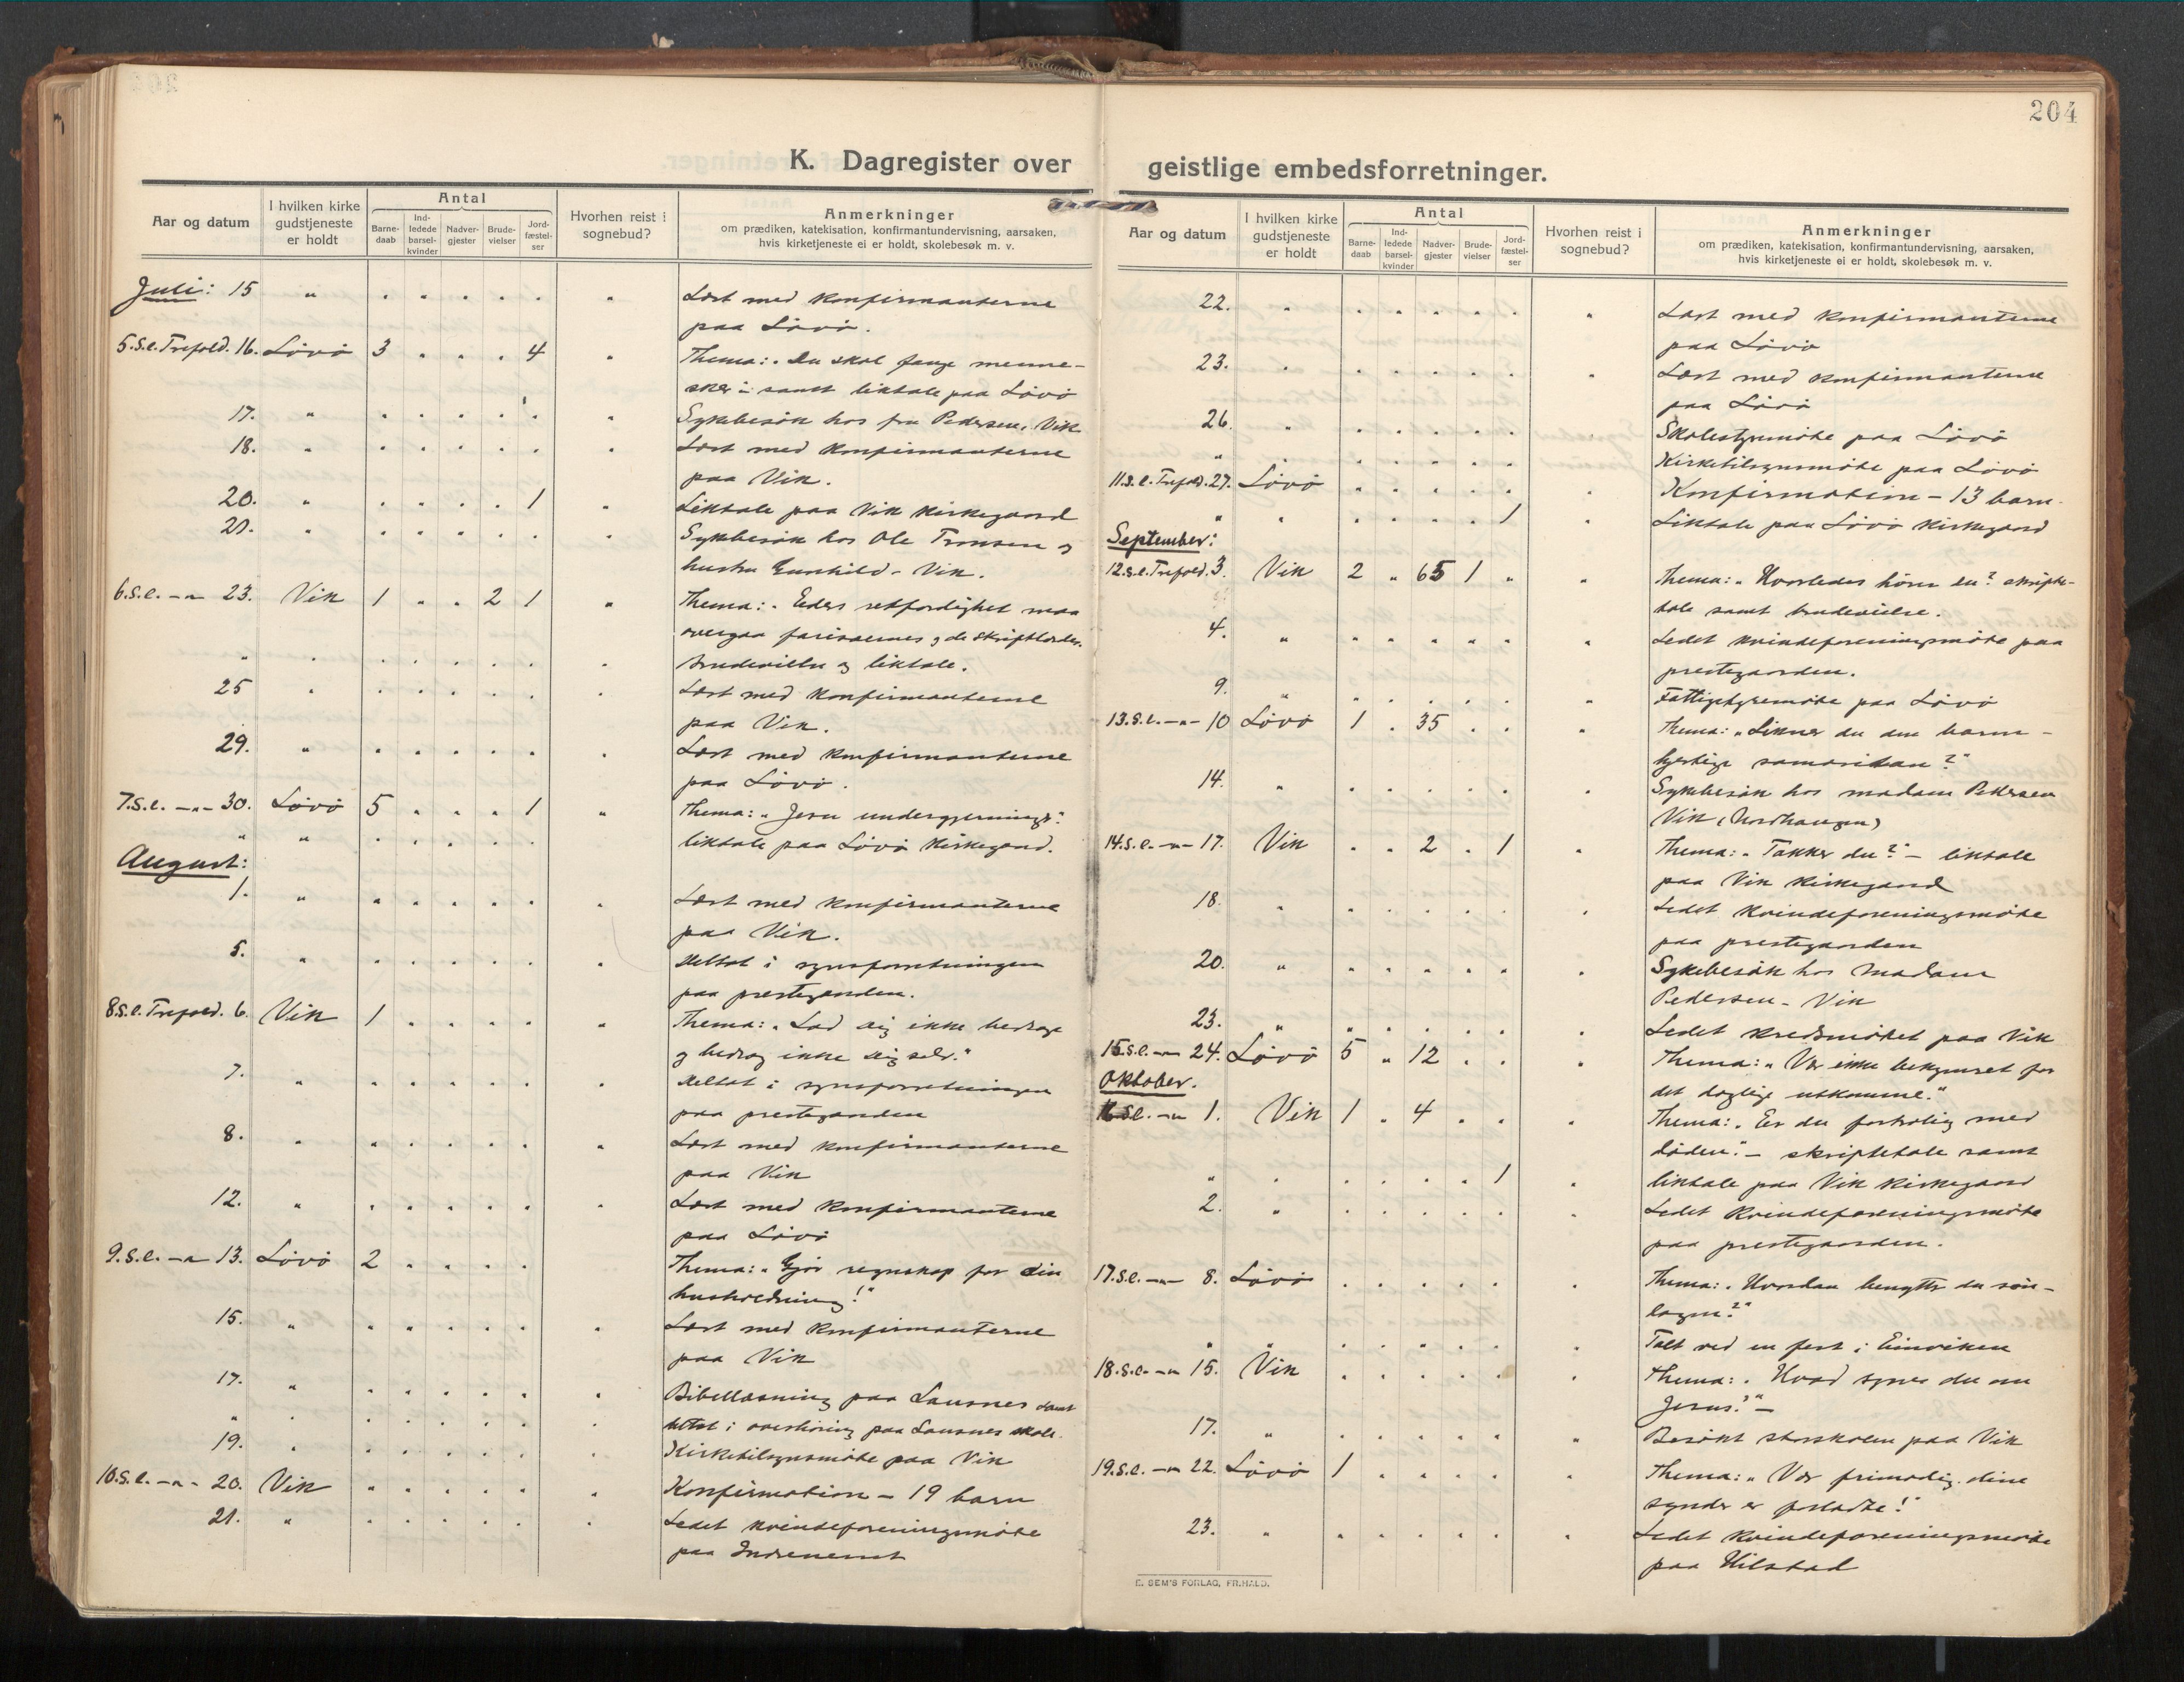 204
K. Dagregister over geistlige embedsforretninger.
Aar og datum
I hvilken kirke gudstjeneste er holdt
Antal
Barne-daab
Ind-ledede barsel-kvinder
Nadver-gjester
Brude-vielser
Jord-fæstel-ser
Hvorhen reist i sognebud?
Anmerkninger
om prædiken, katekisation, konfirmantundervisning, aarsaken,
hvis kirketjeneste ei er holdt, skolebesøk m. v.
Juli: 15 " . . . . . " Læst med konfirmanterne
paa Lövö.
5.S.e.Trefold. 16. Lövö 3 . . . 4 " Thema: "Du skal fange menne-
sker" samt liktale paa Lövö
17. " . . . . . " Sykebesök hos fru Pedersen, Vik
18. " . . . . . " Læst med konfirmanterne
paa Vik.
20. " . . . . 1 " Liktale paa Vik kirkegaard
21. " . . . . . " Sykebesök hos Ole Tronsen og
hustru Gunhild - Vik.
6.S.e. -"- 23. Vik 1 " " 2 1 " Thema: "Eders retfærdighet maa
overgaa farisæernes og de skriftlærdes.
" . . . . . . . brudevielse og liktale.
25 . . . . . . . Læst med konfirmanterne
paa Vik.
29. " . . . . . . Læst med konfirmanterne
paa Lövö.
7.S.e. -"- 30. Lövö 5 . . . 1 " Thema: "Jesu undergjerninger"
" " . . . . . liktale paa Lövö kirkegaard.
August:
1. " . . . . . . Læst med konfirmanterne
paa Vik.
5. " . . . . . . deltat i synsforretningen
paa prestegaarden.
8.S.e.Trefold. 6. Vik 1 . . . . " Thema: "Lad dig ikke bedrage
og bedrag ikke dig selv."
7. " . . . . . . deltat i synsforretningen
paa prestegaarden
8. " . . . . . " Læst med konfirmanterne
paa Vik
12. " . . . . . . Læst med konfirmanterne
paa Lövö
9.S.e. -"- 13. Lövö 2 . . . . Thema: "Gjör regnskap for din
husholdning!"
15. " . . . . . . Læst med konfirmanterne
paa Vik
17. " . . . . . . Bibellæsning paa Lausnes samt
" . . . . . . . deltat i overhöring paa Lausnes skole.
19. . . . . . . . Kirketilsynsmöte paa Vik
10.S.e. -"- 20. Vik . . . . . . Konfirmation - 19 barn
21. " . . . . . . Ledet kvindeforeningsmöte
paa
Aar og datum
I hvilken kirke gudstjeneste er holdt
Antal
Barne-daab
Ind-ledede barsel-kvinder
Nadver-gjester
Brude-vielser
Jord-fæstel-ser
Hvorhen reist i sognebud?
Anmerkninger
om prædiken, katekisation, konfirmantundervisning, aarsaken,
hvis kirketjeneste ei er holdt, skolebesøk m. v.
22. " . . . . . " Læst med konfirmanterne
paa Lövö
23. " . . . . . " Læst med konfirmanterne
paa Lövö
26. " . . . . . . Skolestyremöte paa Lövö
" . . . . . . Kirketilsynsmöte paa Lövö
11.S.e.Trefold. 27. Lövö . . . . . . Konfirmation - 13 barn.
" " . . . . 1 . Liktale paa Lövö kirkegaard
September:
12.S.e.Trefold. 3. Vik 2 " 65 1 " " Thema: "Hvorledes hörer du?" skrifte-
tale samt brudevielse.
4. " . . . . . . Ledet kvindeforeningsmöte paa
prestegaarden.
9. " . . . . . . Fattigstyremöte paa Lövö
13.S.e. -"- 10 Lövö 1 . 35 . . " Thema: "Likner du den barm-
hjertige samaritan?"
14. " . . . . . . Sykebesök hos madam Pedersen
Vik (Nordhaugen)
14.S.e. -"- 17. Vik . . 2 . 1 . Thema: "Takker du?" - liktale
paa Vik kirkegaard
18. " . . . . . . Ledet kvindeforeningsmöte
paa prestegaarden
20. " . . . . . . Sykebesök hos Madam
Pedersen - Vik
23. " . . . . . . Ledet kredsmötet paa Vik
15.S.e. -"- 24. Lövö 5 " 12 . . . Thema: "Vær ikke bekymret for
det daglige utkomme."
Oktober.
16.S.e. -"- 1. Vik 1 . 4 . . . Thema: "Er du fortrolig med
döden." - skriftetale samt
" . . . . . 1 . liktale paa Vik kirkegaard
2. " . . . . . . Ledet kvindeforeningsmöte
paa prestegaarden.
17.S.e. -"- 8. Lövö . . . . . . Thema: "Hvordan benytter du sön-
dagen?"
" " . . . . . . Talt ved en fest i Einviken
18.S.e. -"- 15. Vik . . . . . . Thema: "Hvad synes du om
Jesus?" -
17. " . . . . . " Besökt storskolen paa Vik
19.S.e. -"- 22. Lövö 1 . . . . . Thema: "Vær frimodig, dine
synder er forladte!"
23. " . . . . . . Ledet kvindeforeningsmöte
paa Hilstad
E. SEM'S FORLAG, FR.HALD.